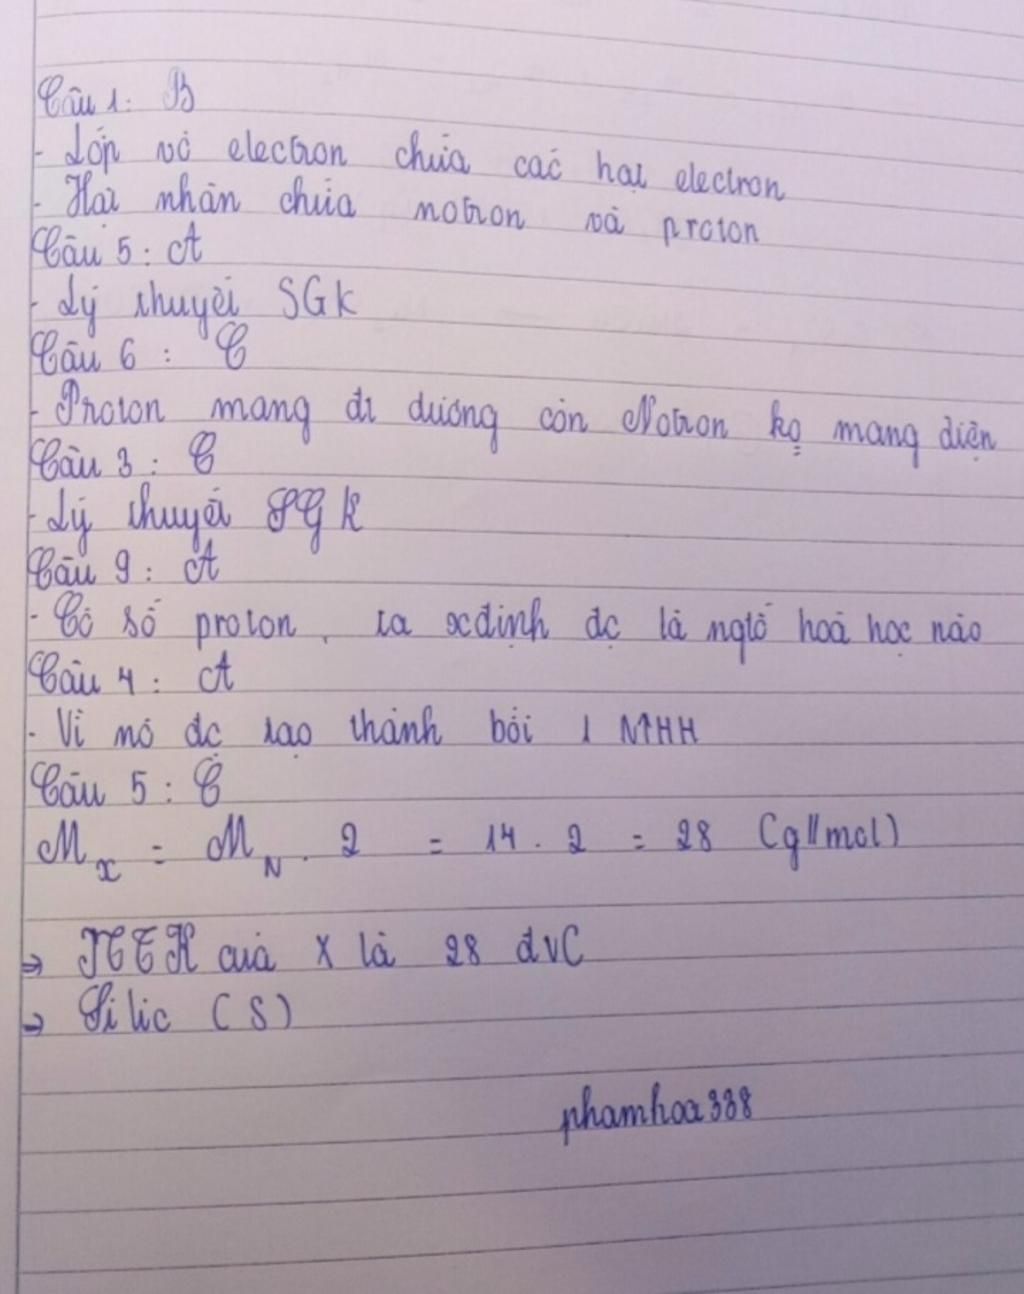 Câu 1: B
- Lớp vỏ electron chứa các hạt electron
- Hạt nhân chứa notron và proton
Câu 5: A
- Lý thuyết SGK
Câu 6: C
- Proton mang đt dương còn Notron ko mang điện
Câu 3: C
- Lý thuyết SGK
Câu 9: A
- Có số proton, ta xđịnh đc là ngtố hoá học nào
Câu 4: A
- Vì nó đc tạo thành bởi 1 NTHH
Câu 5: C
Mx = MN . 2 = 14 . 2 = 28 (g//mol)
⇒ NTK của X là 28 đvC
⇒ Silic (S)
phamhoa338